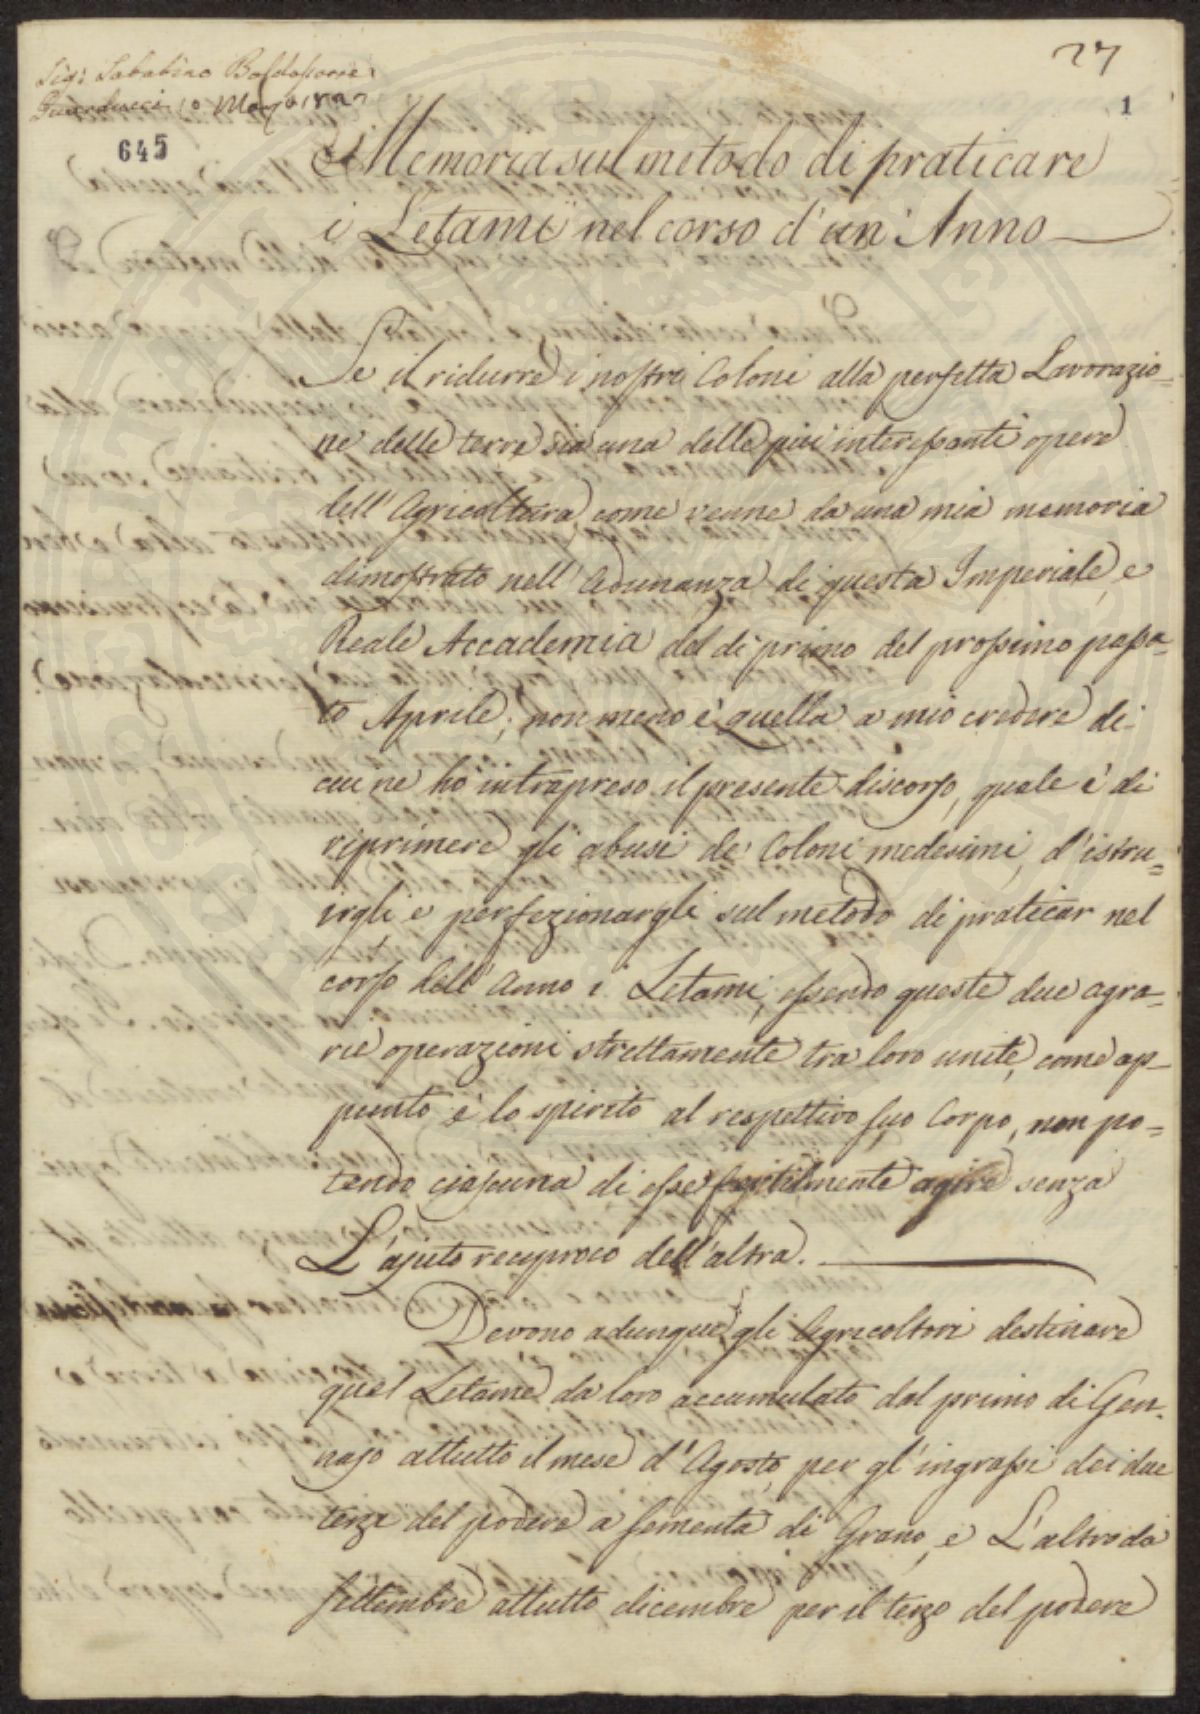 27
1
Sig: Sabatino Baldassarre
Guarducci 10 Maggio 182
645
Memoria sul metodo di praticare
i Letami nel corso d'un' Anno
Se il ridurre i nostri Coloni alla perfetta Lavorazio=
ne delle terre sia una delle più interessanti opere
dell'Agricoltura, come venne da una mia memoria
dimostrato nell'Adunanza di questa Imperiale, e
Reale Accademia del dì primo del prossimo passa=
to Aprile; non meno è quella a mio credere di
cui ne ho intrapreso il presente discorso, quale è di
riprimere gli abusi de' Coloni medesimi, d'istru=
irgli e perfezionargli sul metodo di praticar nel
corso dell'Anno i Letami; essendo queste due agra=
rie operazioni strettamente tra loro unite, come ap=
punto è lo spirito al respettivo suo Corpo, non po=
tendo ciascuna di esse fertilmente agire senza
L'ajuto reciproco dell'altra.
Devono adunque gli Agricoltori destinare
quel Letame da loro accumulato dal primo di Gen=
najo attutto il mese d'Agosto, per gl'ingrassi dei due
terzi del podere a sementa di Grano, e L'altro da
settembre attutto dicembre per il terzo del podere